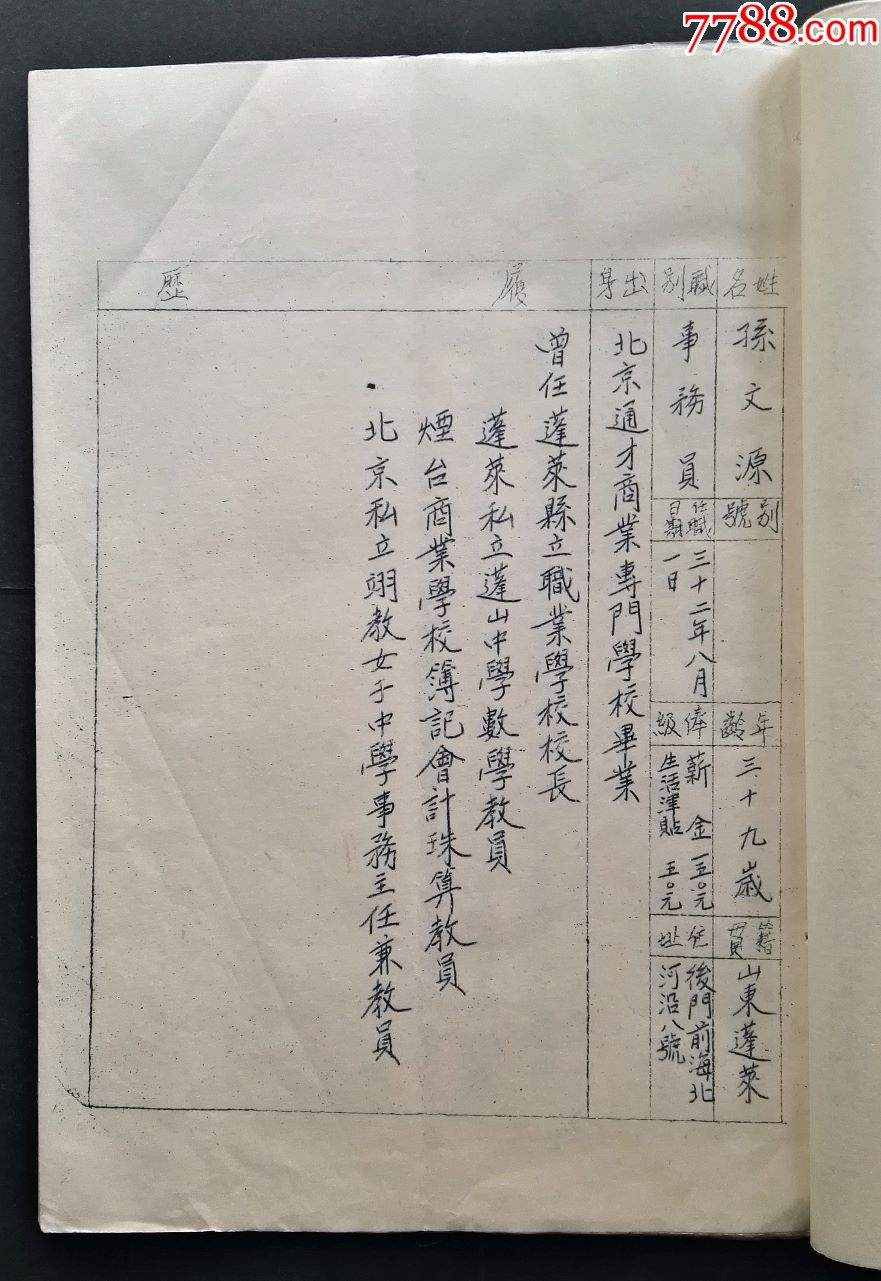 7788.com
姓名
孫文源
別號
年齡
三十九歲
籍貫
山東蓬萊
職別
事務員
任職
日期
三十二年八月
一日
俸級
薪金一五〇元
生活津貼 五〇元
住址
後門前海北
河沿八號
出身
北京通才商業專門學校畢業
履歷
曾任蓬萊縣立職業學校校長
蓬萊私立蓬山中學數學教員
煙台商業學校簿記會計珠算教員
北京私立翊教女子中學事務主任兼教員